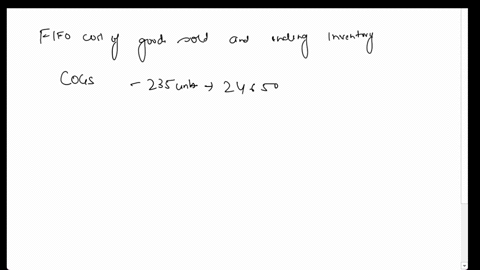 FIFO cost of goods sold and ending Inventory
COGS - 235 units → 24650